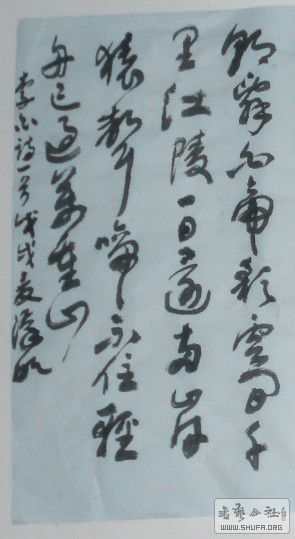 朝辭白帝彩雲間千
里江陵一日還兩岸
猿聲啼不住輕
舟已過萬重山
李白詩一首戊戌夏
书艺公社
WWW.SHUFA.ORG